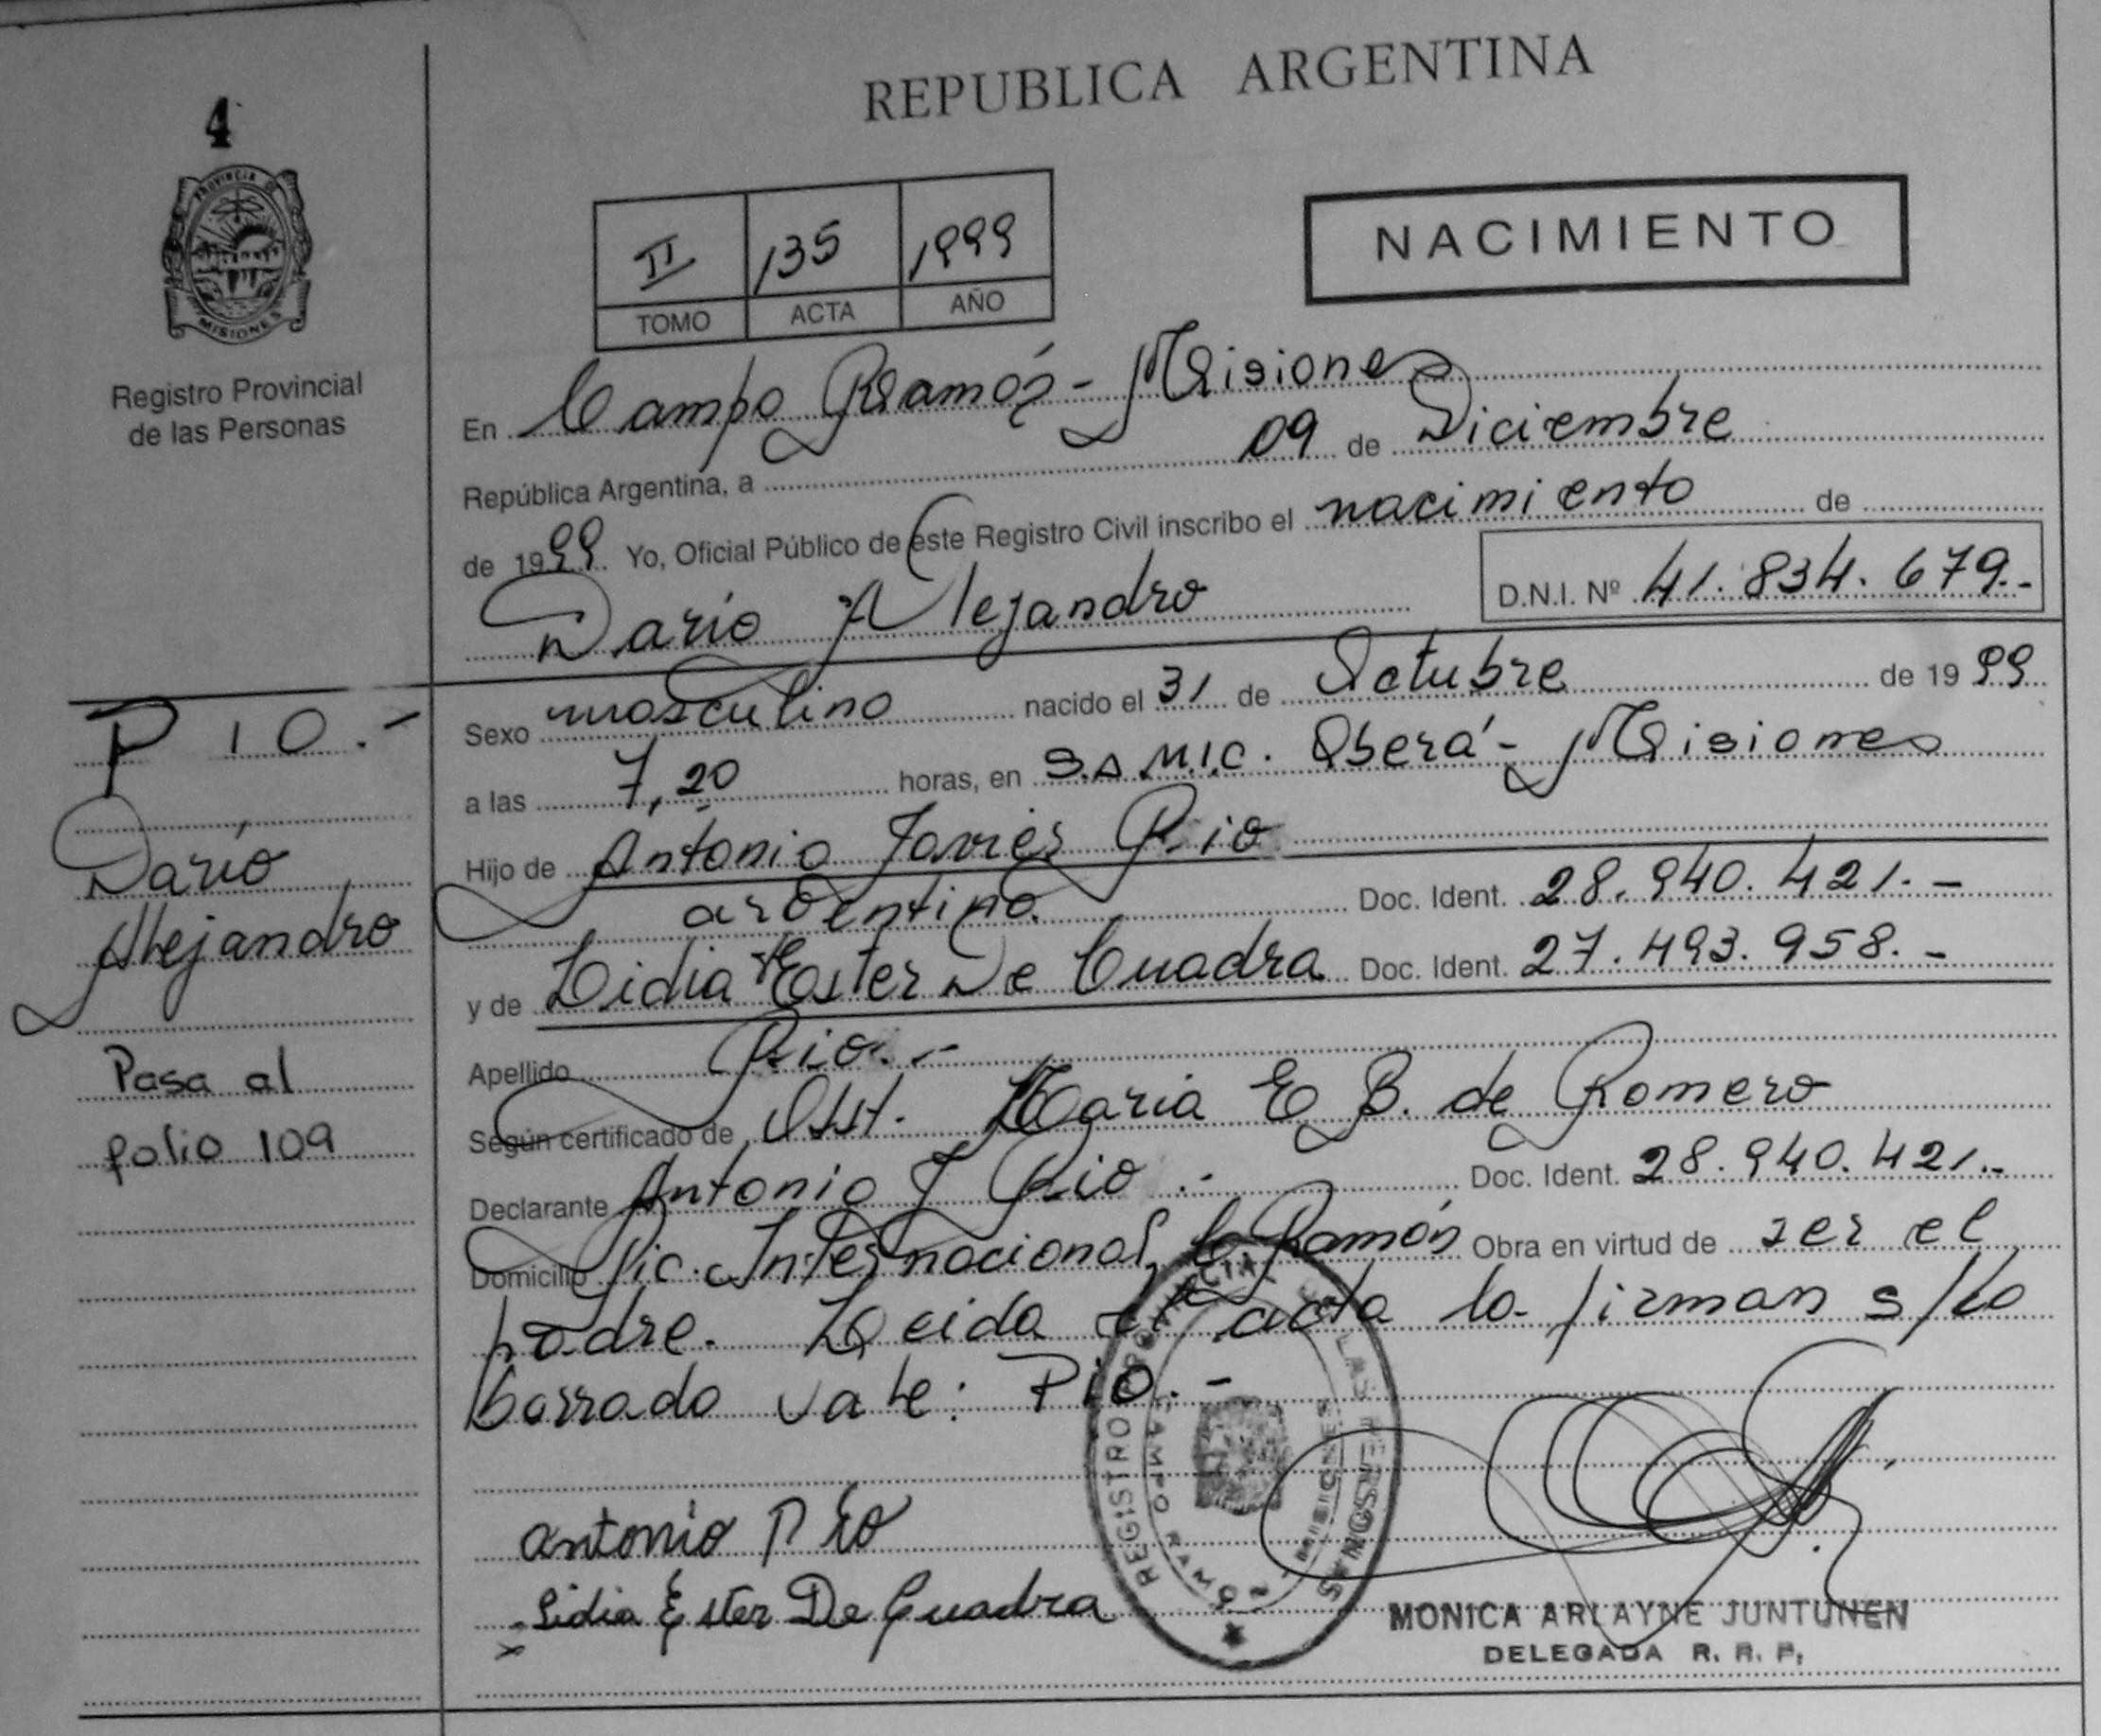 REPUBLICA ARGENTINA
4
PROVINCIA D
MISIONES
Registro Provincial
de las Personas
II 135 1999
TOMO ACTA AÑO
NACIMIENTO
En Campo Ramón - Misiones
República Argentina, a 09 de Diciembre
de 1999 Yo, Oficial Público de este Registro Civil inscribo el nacimiento de
Darío Alejandro D.N.I. Nº 41.834.679.-
Sexo masculino nacido el 31 de Octubre de 1999
a las 7,20 horas, en S.A.M.I.C. Oberá - Misiones
Hijo de Antonio Javier Pio
argentino. Doc. Ident. 28.940.421.-
y de Lidia Ester De Cuadra Doc. Ident. 27.493.958.-
Apellido Pio.-
Según certificado de Obst. Maria E B. de Romero
Declarante Antonio J Pio.- Doc. Ident. 28.940.421.-
Domicilio Pic. Internacional, Co Ramón Obra en virtud de ser el
padre. Leida el acta la firman s/lo
borrado vale: Pio.-
PIO.-
Darío
Alejandro
Pasa al
folio 109
Antonio Pio
Lidia Ester De Cuadra
REGISTRO PROVINCIAL DE LAS PERSONAS
CAMPO RAMON MISIONES
MONICA ARLAYNE JUNTUNEN
DELEGADA R. R. P.